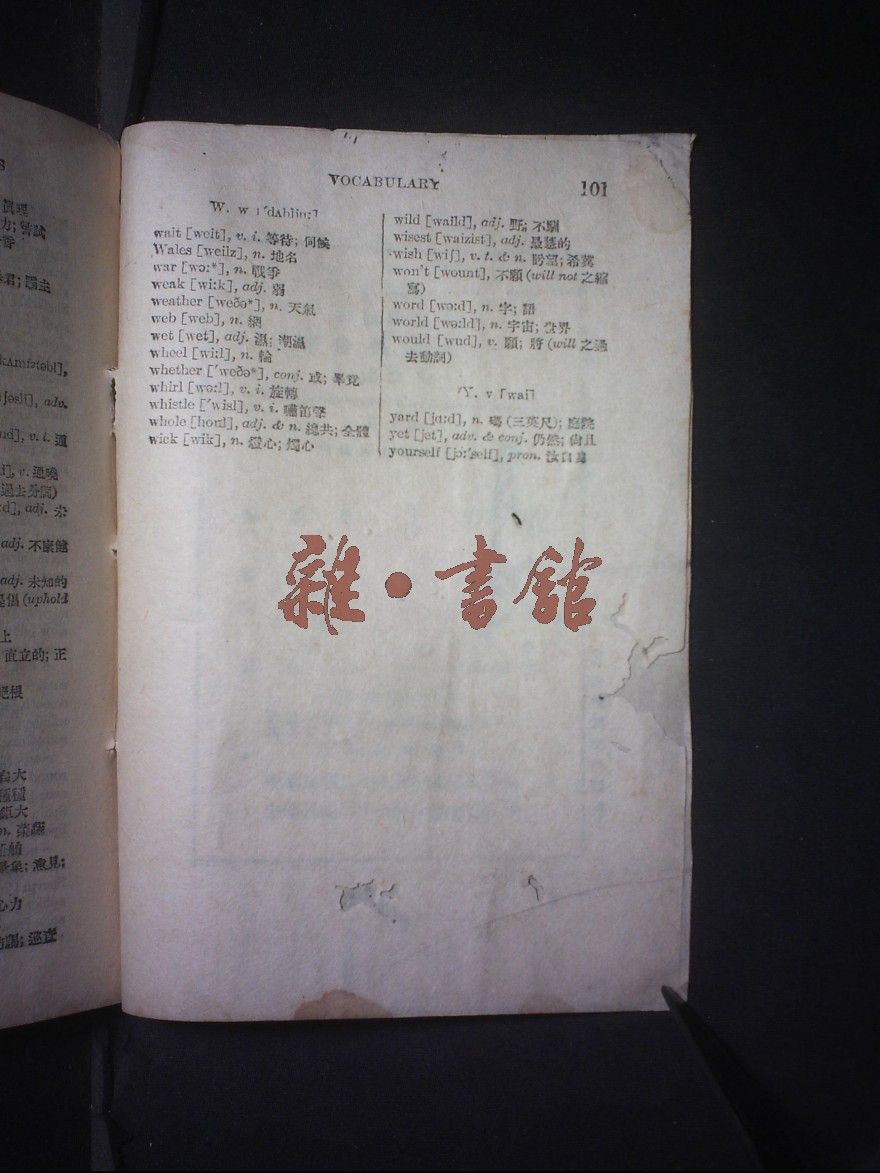 VOCABULARY
101
W. w ['dʌbliu:]
wait [weit], v. i. 等待; 伺候
Wales [weilz], n. 地名
war [wɔ:*], n. 戰爭
weak [wi:k], adj. 弱
weather [weðə*], n. 天氣
web [web], n. 網
wet [wet], adj. 濕; 潮濕
wheel [wi:l], n. 輪
whether ['weðə*], conj. 或; 畢竟
whirl [wə:l], v. i. 旋轉
whistle ['wisl], v. i. 嘯笛聲
whole [houl], adj. & n. 總共; 全體
wick [wik], n. 燈心; 燭心
wild [waild], adj. 野; 不馴
wisest [waizist], adj. 最慧的
wish [wiʃ], v. t. & n. 盼望; 希冀
won't [wount], 不願 (will not 之縮
寫)
word [wə:d], n. 字; 語
world [wə:ld], n. 宇宙; 世界
would [wud], v. 願; 將 (will 之過
去動詞)
Y. y [wai]
yard [jɑ:d], n. 碼 (三英尺); 庭院
yet [jet], adv. & conj. 仍然; 尚且
yourself [jɔ:'self], pron. 汝自身
雜·書館
adv.
v. t.
過去分詞)
adj. 未
adj. 不康健
adj. 未知的
(uphold
上
直立的; 正
心力